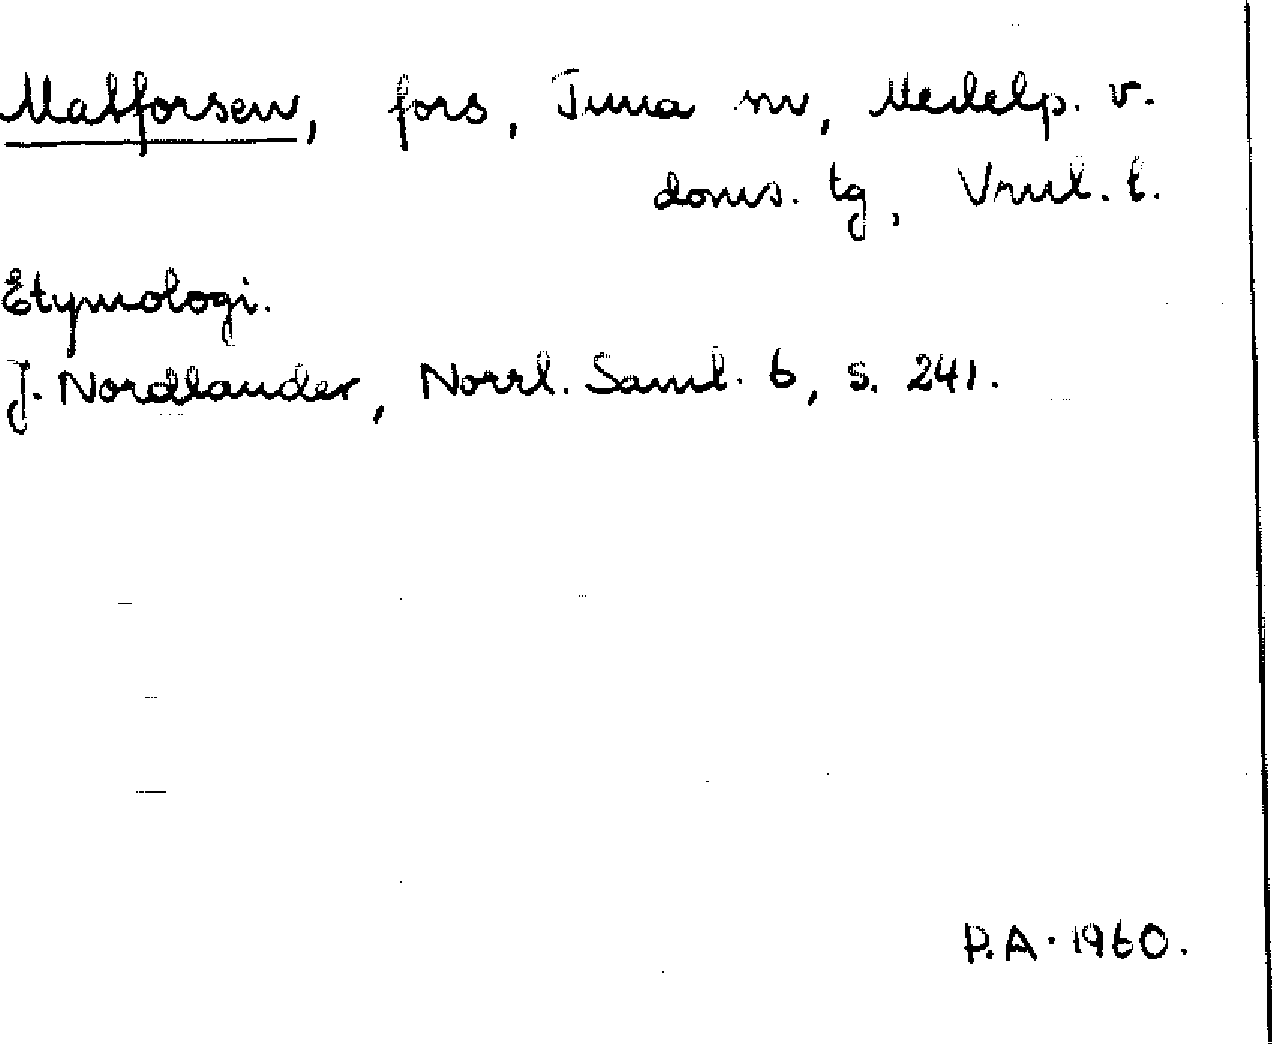 Matforsen, fors, Tuna sn, Medelp. v.
doms. tg, Vrnl. l.
Etymologi.
J. Nordlander, Norrl. Saml. 6, s. 241.
P.A. 1960.